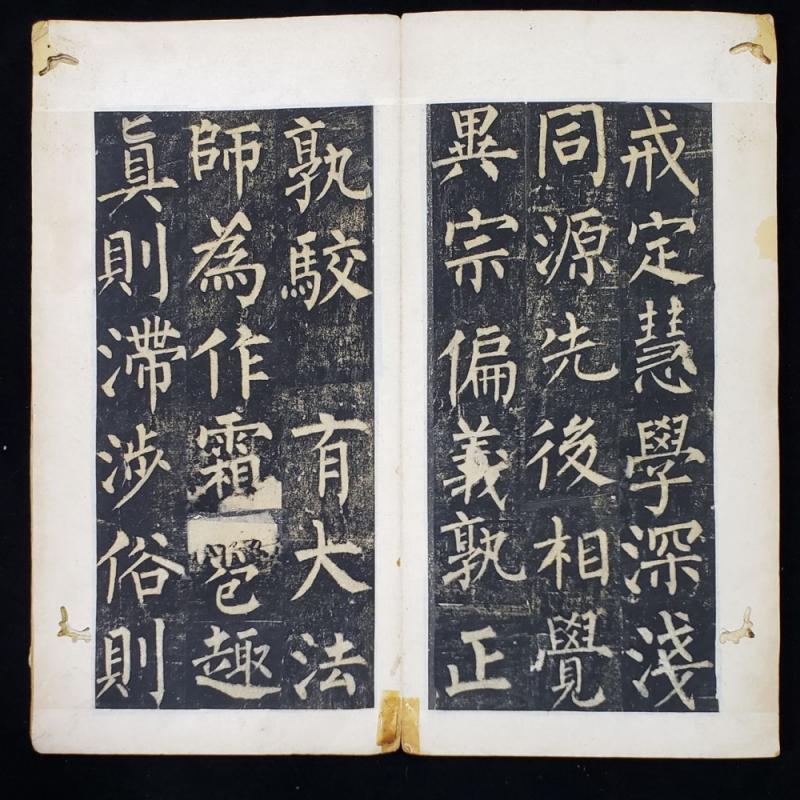 戒定慧學深淺
同源先後相覺
異宗偏義孰正
孰駮有大法
師為作霜雹趣
眞則滯涉俗則